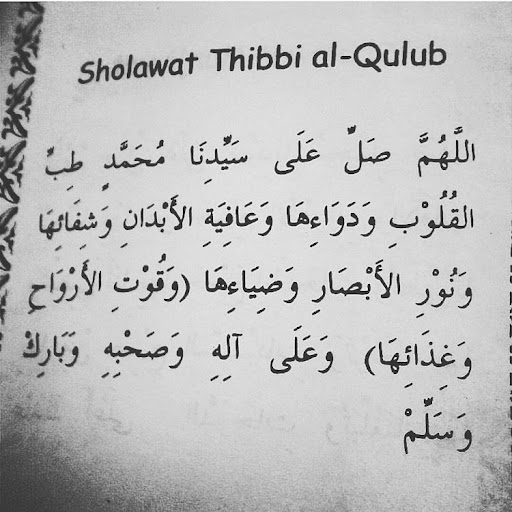 Sholawat Thibbi al-Qulub
اللَّهُمَّ صَلِّ عَلَى سَيِّدِنَا مُحَمَّدٍ طِبِّ
القُلُوْبِ وَدَوَاءِهَا وَعَافِيَةِ الأَبْدَانِ وَشِفَائِهَا
وَنُوْرِ الأَبْصَارِ وَضِيَاءِهَا (وَقُوْتِ الأَرْوَاحِ
وَغِذَائِهَا) وَعَلَى آلِهِ وَصَحْبِهِ وَبَارِكْ
وَسَلِّمْ